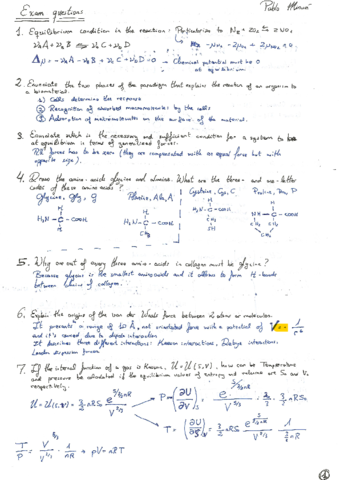 Exam questions
Pablo
1. Equilibrium condition in the reaction: Particularize to N₂ + 2O₂ ⇌ 2NO₂
ν_A A + ν_B B ⇌ ν_C C + ν_D D
-μ_N₂ - 2μ_O₂ + 2μ_NO₂ = 0
Δμ = -ν_A A - ν_B B + ν_C C + ν_D D = 0 → Chemical potential must be 0 at equilibrium
2. Enunciate the two phases of the paradigm that explains the reaction of an organism to a biomaterial.
a) Cells determine the response
② Recognition of adsorbed macromolecules by the cells
① Adsorption of macromolecules on the surface of the material.
3. Enunciate which is the necessary and sufficient condition for a system to be at equilibrium in terms of generalized forces.
forces has to be zero (they are compensated with an equal force but with opposite sign).
4. Draw the amino-acids glycine and alanine. What are the three- and one-letter codes of these amino acids?
Glycine, Gly, G
Alanine, Ala, A
Cysteine, Cys, C
Proline, Pro, P
H
H₂N - C - COOH
H
H
H₂N - C - COOH
CH₃
H
H₂N - C - COOH
CH₂
SH
H
NH - C - COOH
CH₂ CH₂
CH₂
5. Why are out of every three amino-acids in collagen must be glycine?
Because glycine is the smallest aminoacids and it allows to form H-bonds between chains of collagen.
6. Explain the origins of the van der Waals force between 2 atoms or molecules.
It presents a range of 10 Å, not orientated force with a potential of V α - 1/r⁶
and it's caused due to dipole interaction
It describes three different interactions: Keesom interactions, Debye interactions, London dispersion forces
7. If the internal function of a gas is known, U = U(S,V), how can be Temperature and pressure be calculated if the equilibrium values of entropy and volume are S₀ and V₀ respectively.
P = (∂U/∂V)_S
T = (∂U/∂S)_V
→ pV = nRT